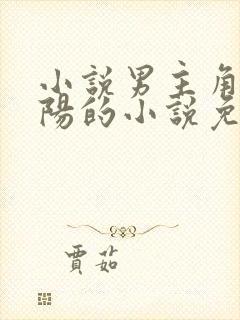 小說男主角
陽的小說免
賈茹